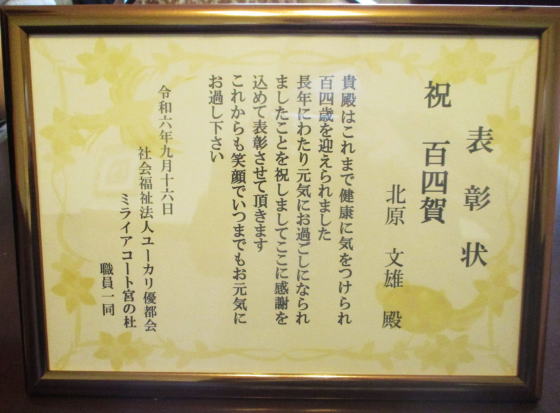 表彰状
祝 百四賀
北原 文雄 殿
貴殿はこれまで健康に気をつけられ
百四歳を迎えられました
長年にわたり元気にお過ごしになられ
ましたことを祝しましてここに感謝を
込めて表彰させて頂きます
これからも笑顔でいつまでもお元気に
お過し下さい
令和六年九月十六日
社会福祉法人ユーカリ優都会
ミライアコート宮の杜
職員一同